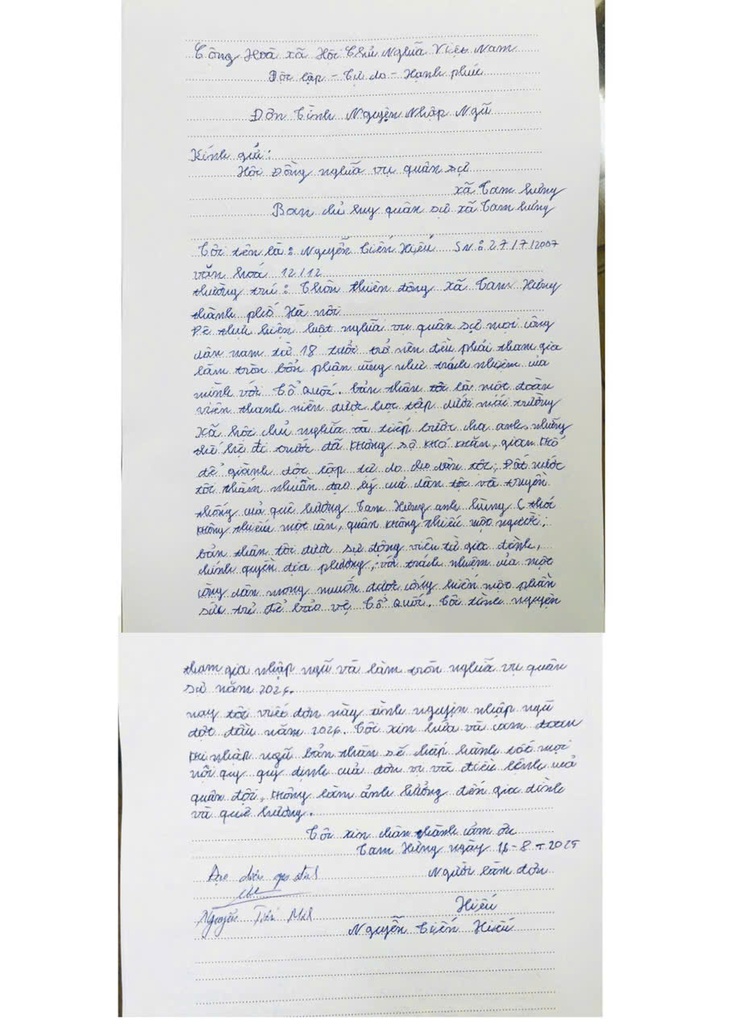 Cộng Hoà xã Hội Chủ Nghĩa Việt Nam
Độc lập - Tự do - Hạnh phúc
Đơn Tình Nguyện Nhập Ngũ
Kính gửi:
Hội Đồng nghĩa vụ quân sự
xã Tam hưng
Ban chỉ huy quân sự xã Tam hưng
Tôi tên là: Nguyễn Tiến Hiếu SN: 27/7/2007
văn hoá 12/12
thường trú: Thôn thiên đông xã Tam Hưng
thành phố Hà nội
Để thực hiện luật nghĩa vụ quân sự mọi công
dân nam từ 18 tuổi trở nên đều phải tham gia
làm tròn bổn phận cũng như trách nhiệm của
mình với Tổ Quốc. bản thân tôi là một đoàn
viên thanh niên được học tập dưới mái trường
Xã hội chủ nghĩa và tiếp bước cha anh những
thế hệ đi trước đã không sợ khó khăn, gian khổ
để giành độc lập tự do cho dân tộc, Đất nước
tôi thấm nhuần đạo lý của dân tộc và truyền
thống của quê hương Tam Hưng anh hùng (thóc
không thiếu một cân, quân không thiếu một người,
bản thân tôi được sự động viên từ gia đình,
chính quyền địa phương, với trách nhiệm của một
công dân mong muốn được cống hiến một phần
sức trẻ để bảo vệ Tổ Quốc. Tôi tình nguyện
tham gia nhập ngũ và làm tròn nghĩa vụ quân
sự năm 2026.
nay tôi viết đơn này tình nguyện nhập ngũ
đợt đầu năm 2026. Tôi xin hứa và cam đoan
khi nhập ngũ bản thân sẽ chấp hành tốt mọi
nội quy quy định của đơn vị và điều lệnh của
quân đội, không làm ảnh hưởng đến gia đình
và quê hương.
Tôi xin chân thành cảm ơn
Tam Hưng ngày 16-8-2025
Đại diện gia đình
Người làm đơn
Hiếu
Nguyễn Tiến
Nguyễn Tiến Hiếu